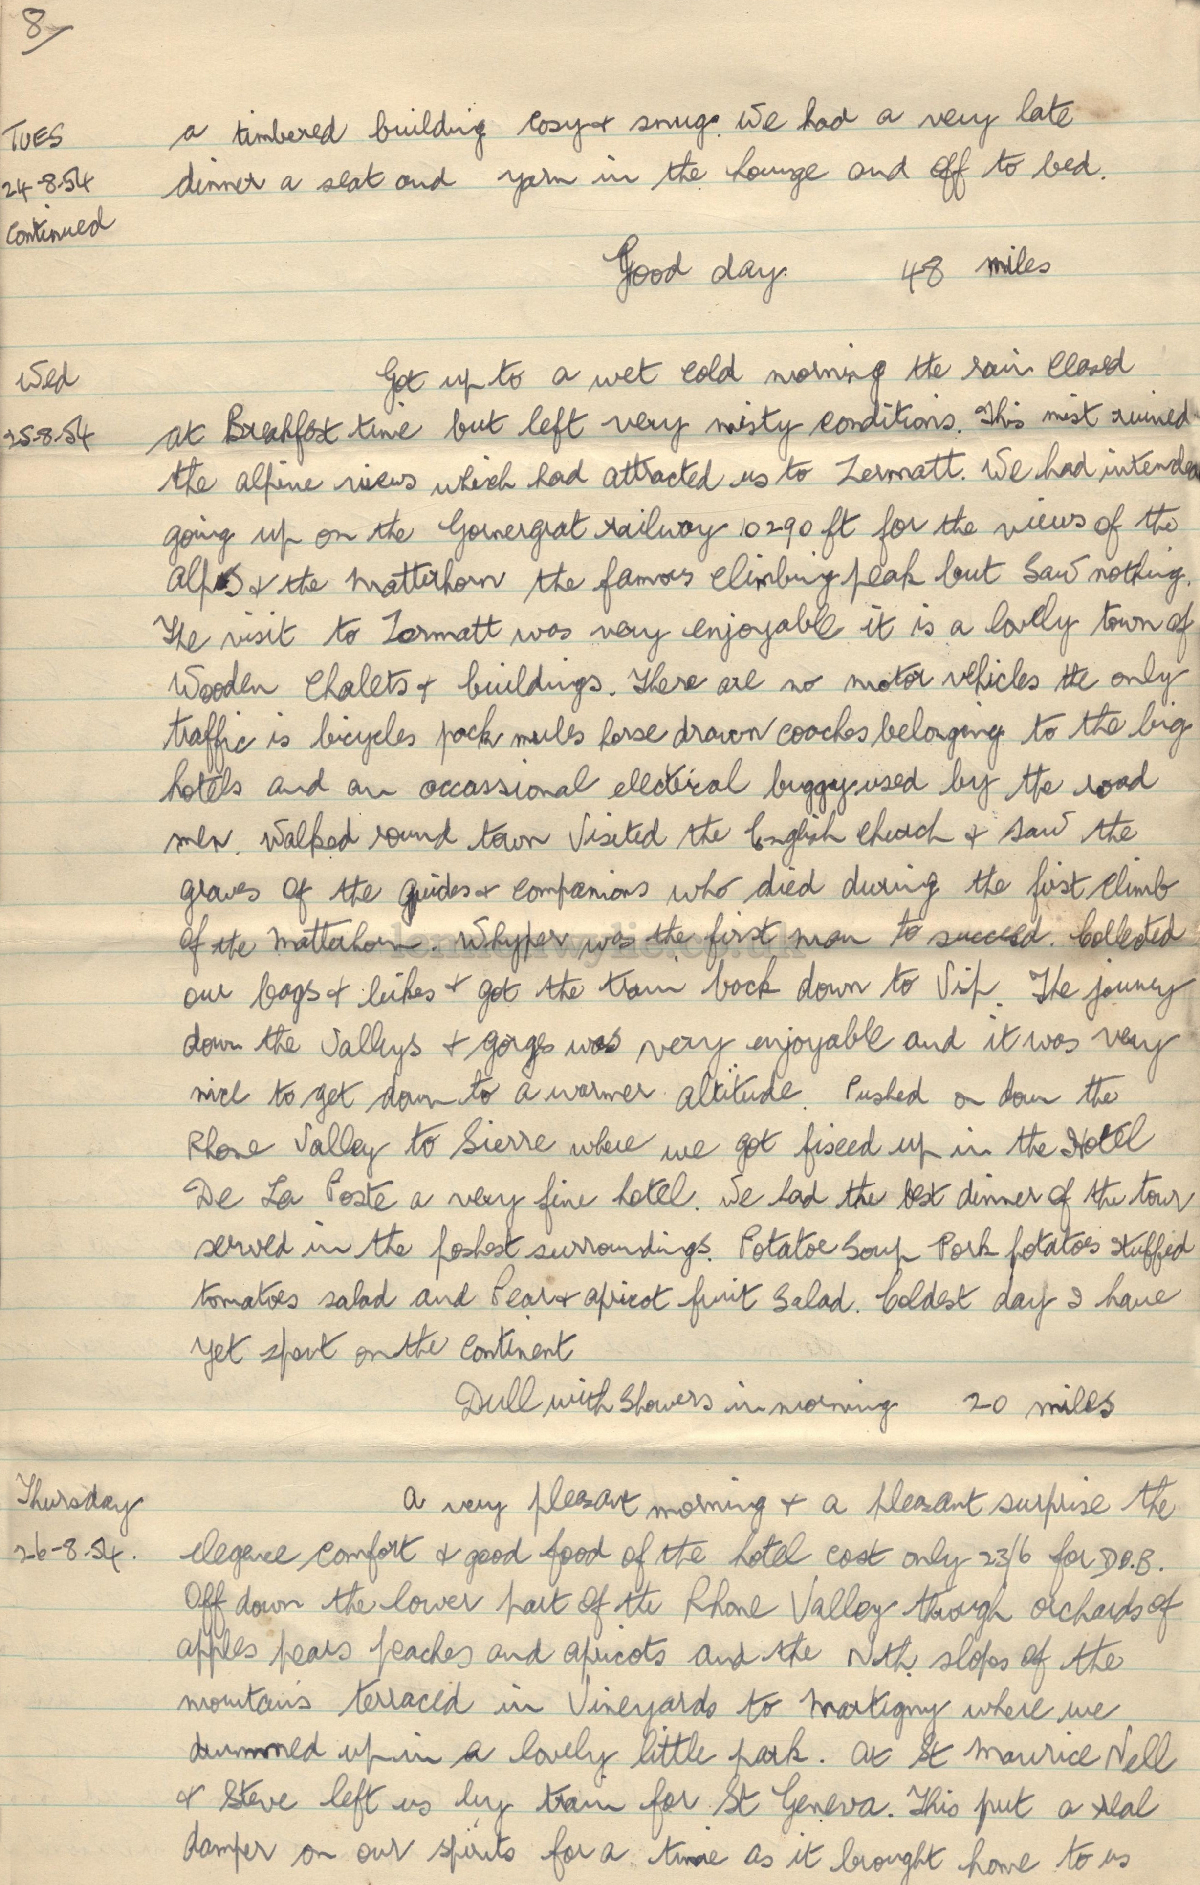 8
TUES
24-8-54
Continued
a timbered building cosy & snug. We had a very late
dinner a seat and yarn in the lounge and off to bed.
Good day. 48 miles
Wed
25-8-54
Got up to a wet cold morning the rain Ceased
at Breakfast time but left very misty conditions. This mist ruined
the alpine views which had attracted us to Zermatt. We had intended
going up on the Gornergrat railway 10290 ft for the views of the
Alps & the Matterhorn the famous climbing peak but saw nothing.
The visit to Zermatt was very enjoyable it is a lovely town of
Wooden Chalets & buildings. There are no motor vehicles the only
traffic is bicycles pack mules horse drawn coaches belonging to the big
hotels and an occassional electrical buggy used by the road
men. Walked round town Visited the English Church & saw the
graves of the guides & companions who died during the first climb
of the Matterhorn. Whyper was the first man to succeed. Collected
our bags & bikes & got the train back down to Visp. The jouney
down the Valleys & gorges was very enjoyable and it was very
nice to get down to a warmer altitude. Pushed on down the
Rhone Valley to Sierre where we got fixed up in the Hotel
De La Poste a very fine hotel. We had the best dinner of the tour
served in the poshest surroundings. Potatoe Soup Pork potatoes stuffed
tomatoes salad and Pear & apricot fruit Salad. Coldest day I have
yet spent on the Continent
Dull with Showers in morning 20 miles
Thursday
26-8-54.
A very pleasant morning & a pleasant surprise the
elegance comfort & good food of the hotel cost only 23/6 for D.B.B.
Off down the lower part of the Rhone Valley through orchards of
apples pears peaches and apricots and the Nth. slopes of the
mountains terraced in Vineyards to Martigny where we
drummed up in a lovely little park. At St Maurice Nell
& Steve left us by train for St Geneva. This put a real
damper on our spirits for a time as it brought home to us
lennonwylie.co.uk